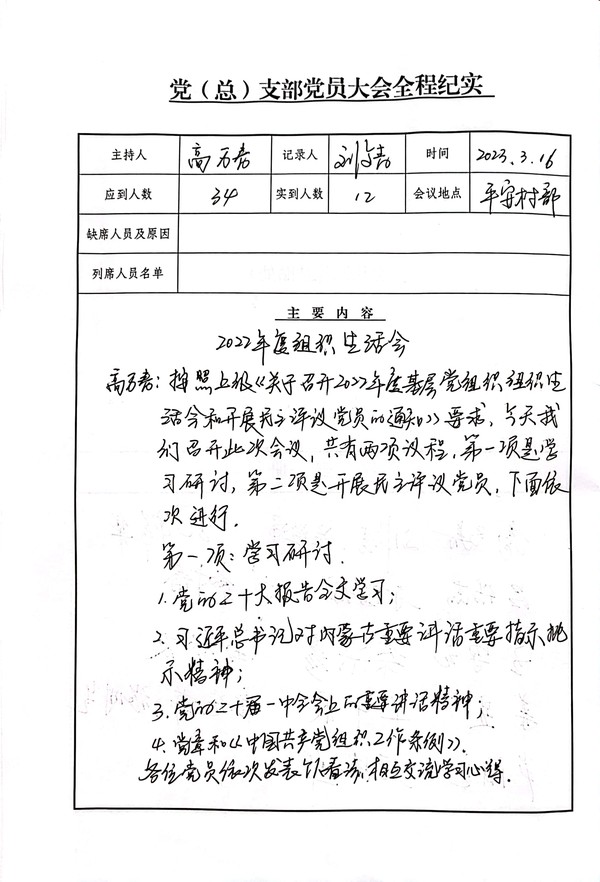 党（总）支部党员大会全程纪实
主持人 高万春 记录人 时间 2023.3.16
应到人数 34 实到人数 12 会议地点 平安村部
缺席人员及原因
列席人员名单
主要内容
2022年度组织生活会
高万春：按照上级《关于召开2022年度基层党组织组织生
活会和开展民主评议党员的通知》要求，今天我
们召开此次会议，共有两项议程，第一项是学
习研讨，第二项是开展民主评议党员，下面依
次进行.
第一项：学习研讨.
1.党的二十大报告全文学习；
2.习近平总书记对内蒙古重要讲话重要指示批
示精神；
3.党的二十届一中全会上的重要讲话精神；
4.党章和《中国共产党组织工作条例》.
各位党员依次发表个人看法，相互交流学习心得.